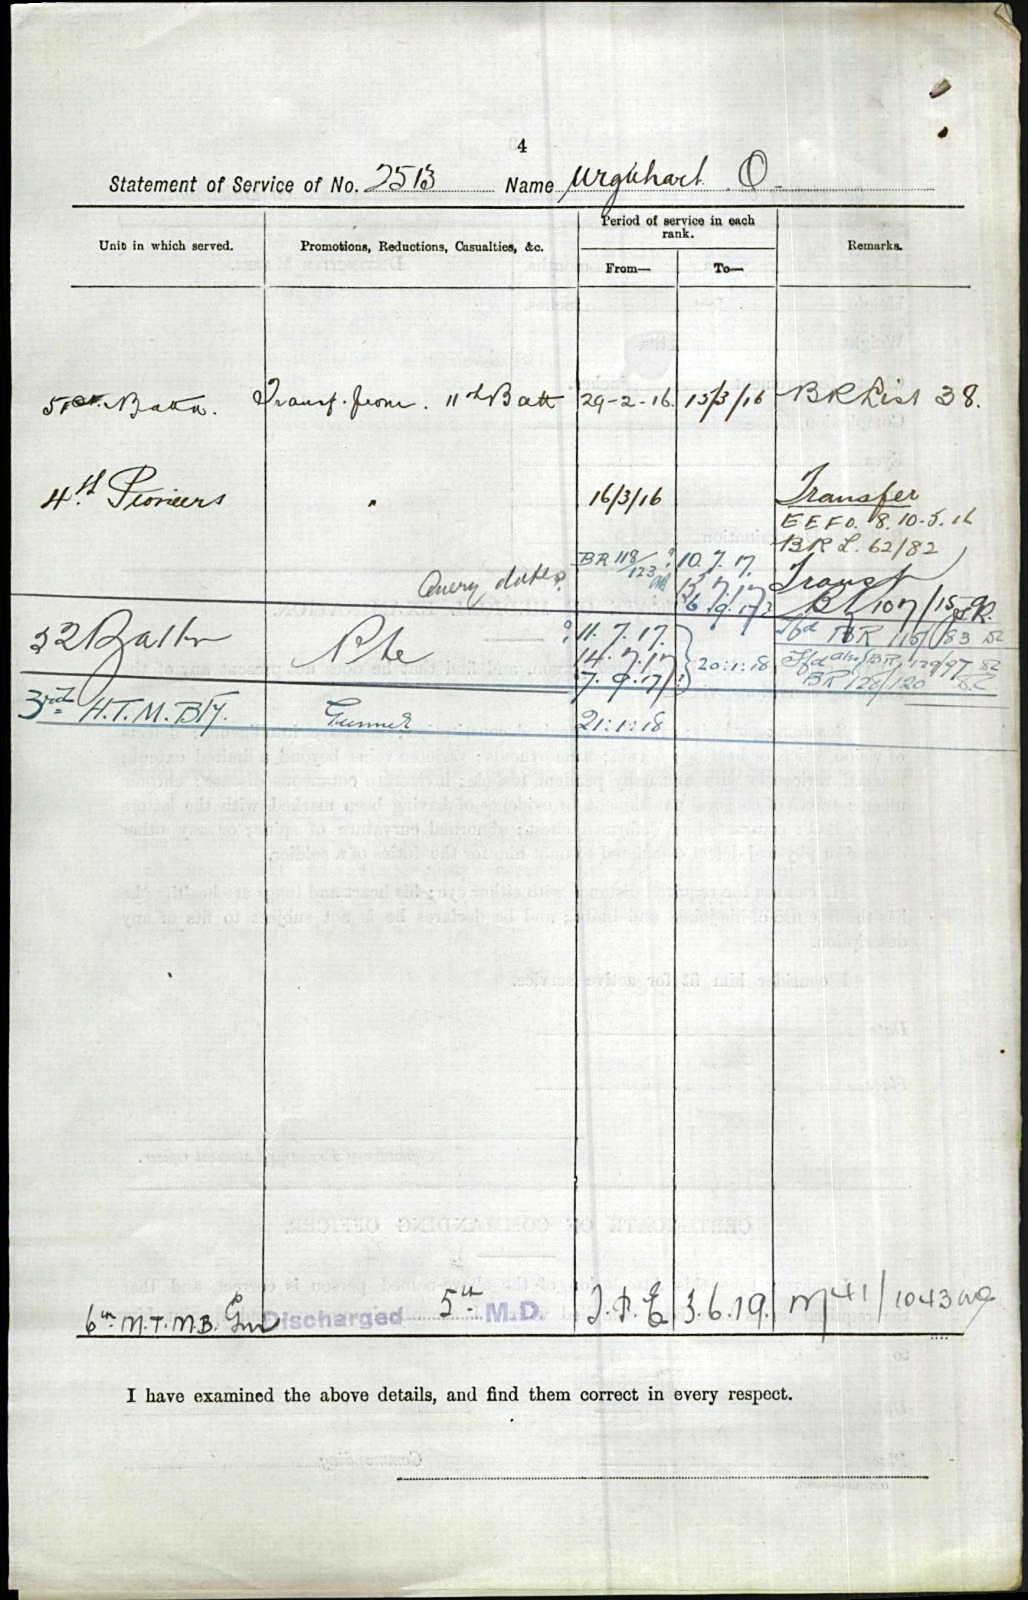 4
Statement of Service of No. 2513 Name Urquhart. O.
Unit in which served.
Promotions, Reductions, Casualties, &c.
Period of service in each rank.
From—
To—
Remarks.
51st Battn. Transf. from. 11th Batt 29-2-16. 15/3/16 BR List 38.
4th Pioneers " 16/3/16 Transfer
EEFO. 8. 10-5.16
BRL. 62/82
BR 118/123 ? 10.7.17. Transf
Query dates. 13.7.17 BR 107/15
6.9.17?
52 Battn Pte ? 11.7.17. 20.1.18 Tfd BR 115/83
14.7.17 Tfd also BR 129/97
7.9.17 BR 128/120
3rd H.T.M. Bty. Gunner 21.1.18
6th M.T.M.B. Gnr Discharged 5th M.D. T.P.E. 3.6.19. M41/1043
I have examined the above details, and find them correct in every respect.